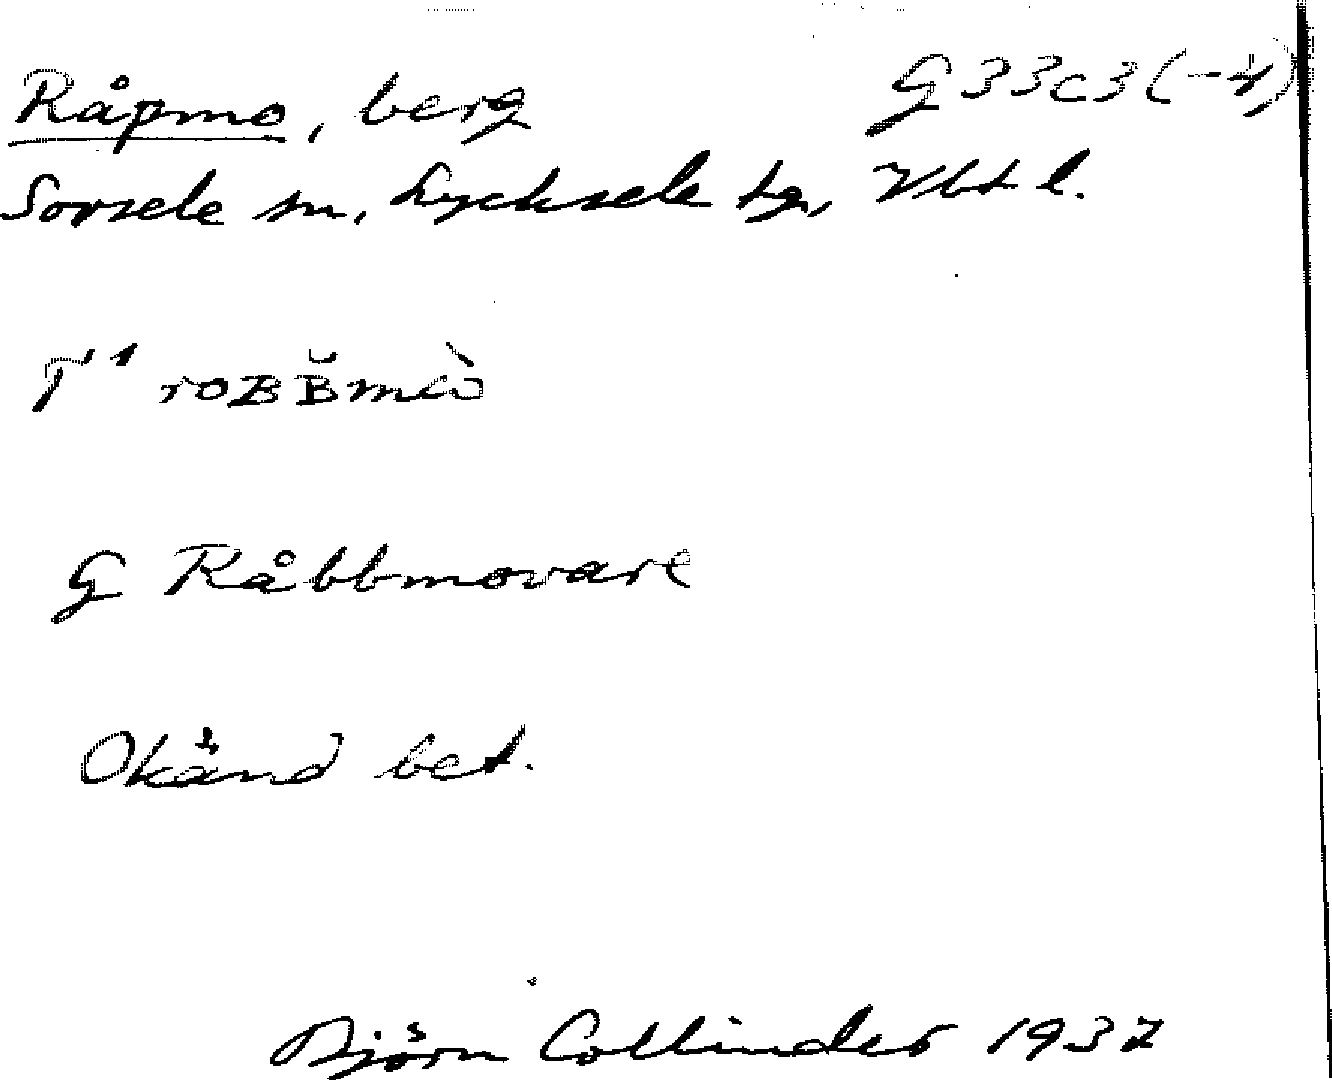 Råpmo, berg G33c3(-4)
Sorsele sn, Lycksele tg, Vbt l.
roʙʙ̆mὼ
G Råbbmovare
Okänd bet.
Björn Collinder 1937